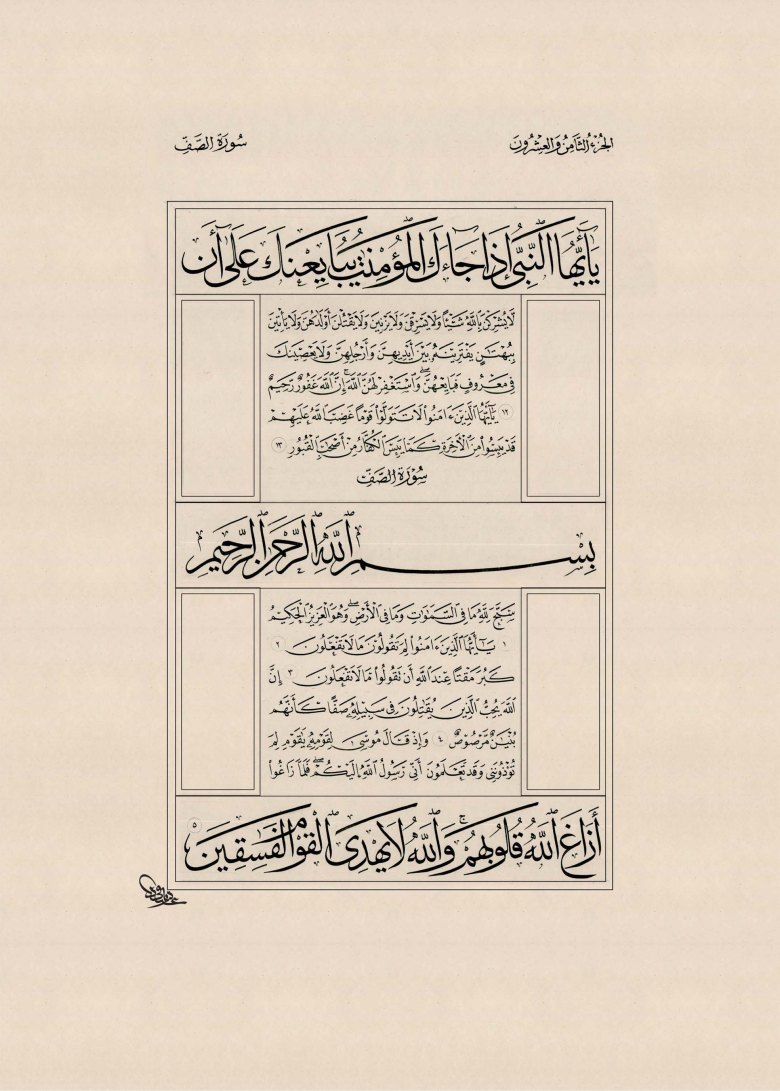 الجُزْءُ الثَّامِنُ وَالْعِشْرُونَ
سُورَةُ الصَّفِّ
يَٰٓأَيُّهَا ٱلنَّبِيُّ إِذَا جَآءَكَ ٱلْمُؤْمِنَٰتُ يُبَايِعْنَكَ عَلَىٰٓ أَن
لَّا يُشْرِكْنَ بِٱللَّهِ شَيْـًٔا وَلَا يَسْرِقْنَ وَلَا يَزْنِينَ وَلَا يَقْتُلْنَ أَوْلَٰدَهُنَّ وَلَا يَأْتِينَ
بِبُهْتَٰنٍ يَفْتَرِينَهُۥ بَيْنَ أَيْدِيهِنَّ وَأَرْجُلِهِنَّ وَلَا يَعْصِينَكَ
فِى مَعْرُوفٍ فَبَايِعْهُنَّ وَٱسْتَغْفِرْ لَهُنَّ ٱللَّهَ إِنَّ ٱللَّهَ غَفُورٌ رَّحِيمٌ
١٢ يَٰٓأَيُّهَا ٱلَّذِينَ ءَامَنُوا۟ لَا تَتَوَلَّوْا۟ قَوْمًا غَضِبَ ٱللَّهُ عَلَيْهِمْ
قَدْ يَئِسُوا۟ مِنَ ٱلْـَٔاخِرَةِ كَمَا يَئِسَ ٱلْكُفَّارُ مِنْ أَصْحَٰبِ ٱلْقُبُورِ ١٣
سُورَةُ الصَّفِّ
بِسْمِ ٱللَّهِ ٱلرَّحْمَٰنِ ٱلرَّحِيمِ
سَبَّحَ لِلَّهِ مَا فِى ٱلسَّمَٰوَٰتِ وَمَا فِى ٱلْأَرْضِ وَهُوَ ٱلْعَزِيزُ ٱلْحَكِيمُ
١ يَٰٓأَيُّهَا ٱلَّذِينَ ءَامَنُوا۟ لِمَ تَقُولُونَ مَا لَا تَفْعَلُونَ ٢
كَبُرَ مَقْتًا عِندَ ٱللَّهِ أَن تَقُولُوا۟ مَا لَا تَفْعَلُونَ ٣ إِنَّ
ٱللَّهَ يُحِبُّ ٱلَّذِينَ يُقَٰتِلُونَ فِى سَبِيلِهِۦ صَفًّا كَأَنَّهُم
بُنْيَٰنٌ مَّرْصُوصٌ ٤ وَإِذْ قَالَ مُوسَىٰ لِقَوْمِهِۦ يَٰقَوْمِ لِمَ
تُؤْذُونَنِى وَقَد تَّعْلَمُونَ أَنِّى رَسُولُ ٱللَّهِ إِلَيْكُمْ فَلَمَّا زَاغُوٓا۟
أَزَاغَ ٱللَّهُ قُلُوبَهُمْ وَٱللَّهُ لَا يَهْدِى ٱلْقَوْمَ ٱلْفَٰسِقِينَ ٥